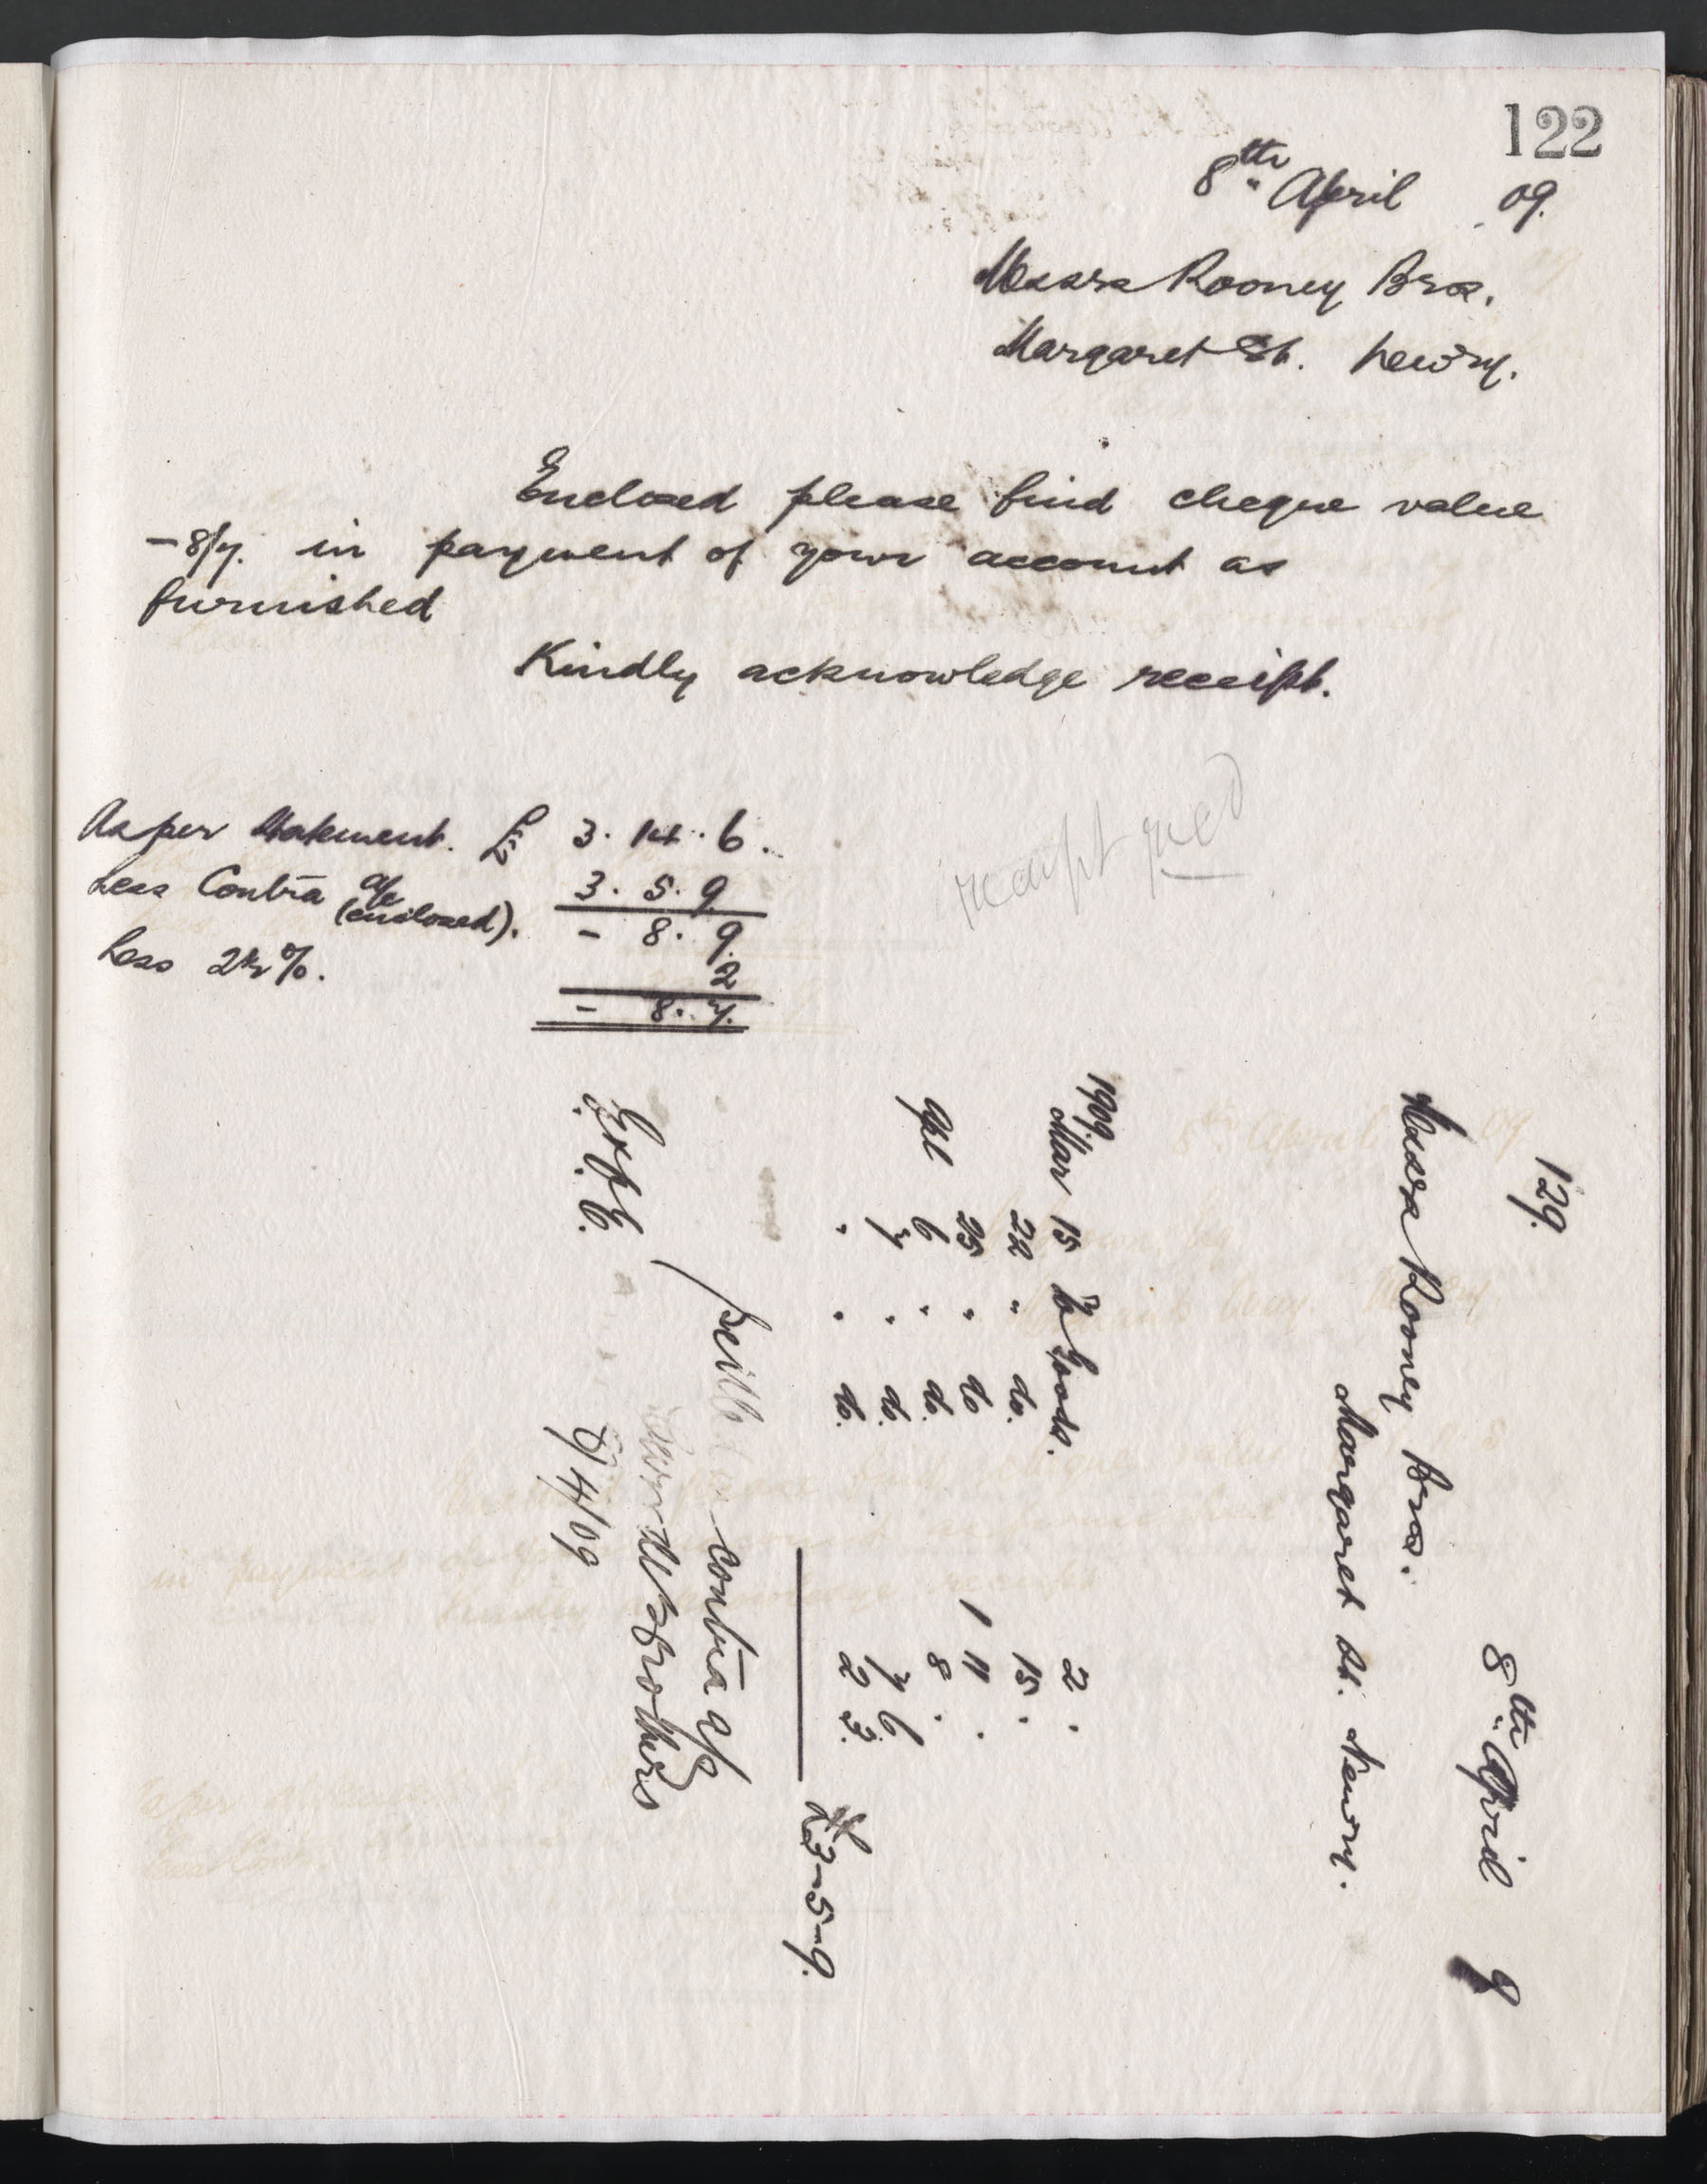 122
8th April 09.
Messrs Rooney Bros.
Margaret St. Newry.
Enclosed please find cheque value
- 8/7. in payment of your account as
furnished
Kindly acknowledge receipt.
As per Statement. £ 3. 14. 6.
Less Contra a/c (enclosed). 3. 5. 9
- 8. 9.
Less 2½%. 2
- 8. 7.
receipt recd
129.
8th April 9
Messrs Rooney Bros.
Margaret St. Newry.
1909
Mar 15 To Goods. 2 .
22 " do. 15 .
25 " do 1 11 .
Apl 6 " do. 8 .
7 " do. 7 6
" " do. 2 3.
£3-5-9.
Contra a/c
Brothers
E. & O. E.
8/4/09